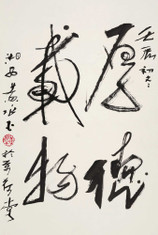 壬辰初冬
厚德
載物
湘西黃永玉
於萬荷堂